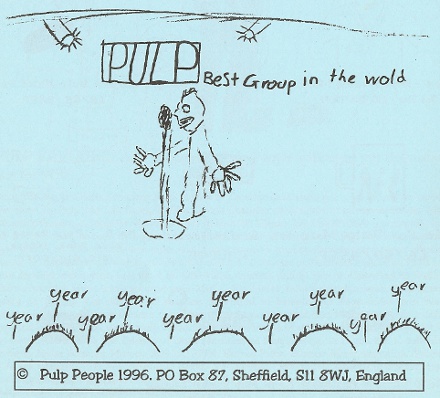 PULP
Best Group in the wold
year year year year year year year year year year
© Pulp People 1996. PO Box 87, Sheffield, S11 8WJ, England